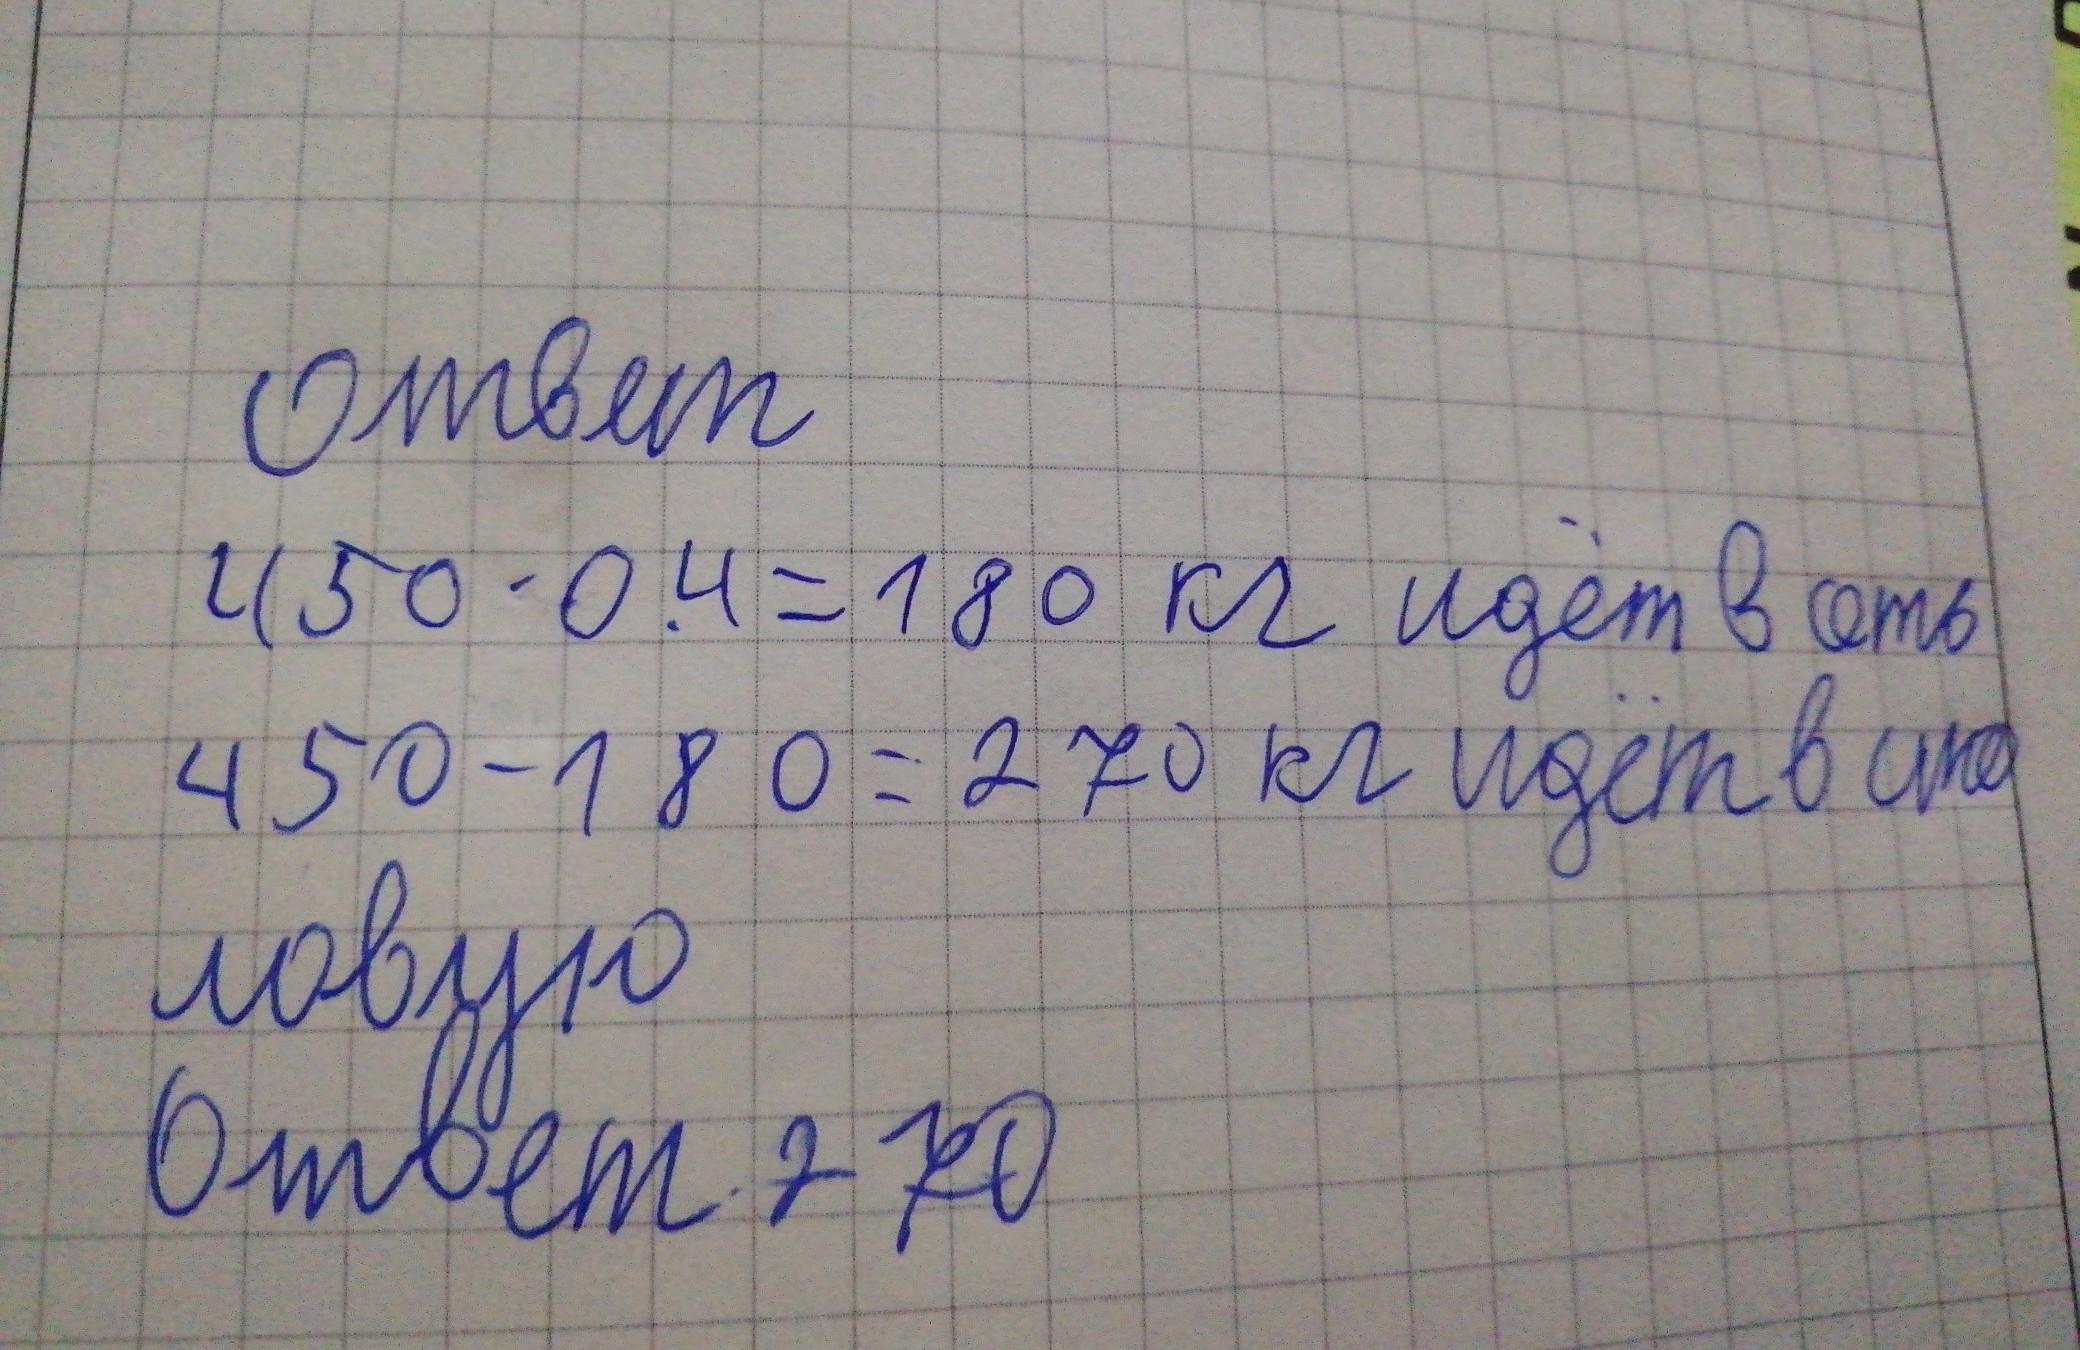 Ответ
450·0.4=180 кг идёт в сеть
450-180=270 кг идёт в сто
ловую
Ответ. 270